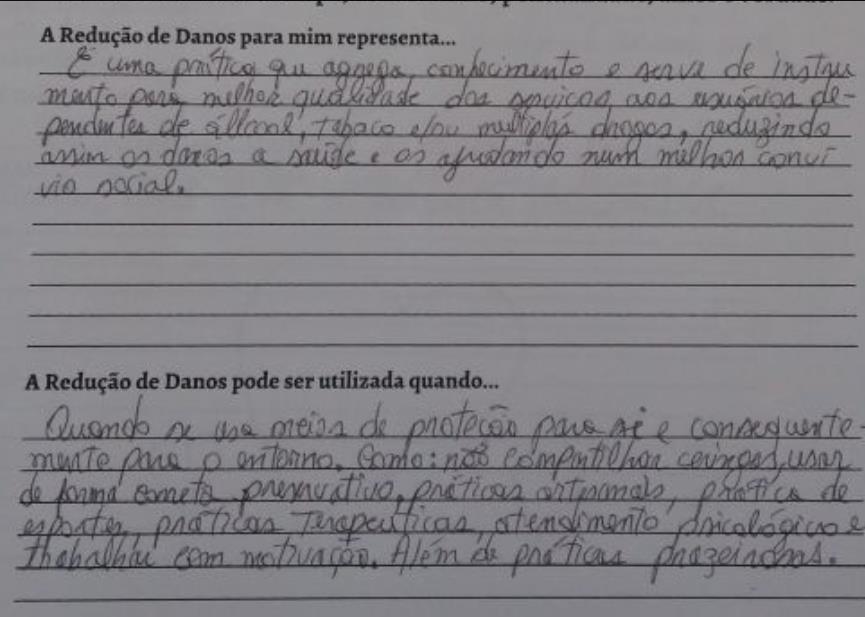 A Redução de Danos para mim representa...
É uma prática que agrega, conhecimento e serve de instru
mento para melhor qualidade dos serviços aos usuários de-
pendentes de álcool, tabaco e/ou multiplas drogas, reduzindo
assim os danos a saúde e os ajudando num melhor conví
vio social.
A Redução de Danos pode ser utilizada quando...
Quando se usa meios de proteção para si e consequente-
mente para o entorno. Como: não compartilhar seringas, usar
de forma correta preservativo, práticas artesanais, prática de
esportes, práticas Terapeuticas, atendimento psicológico e
trabalhar com motivação. Além de práticas prazeirosas.